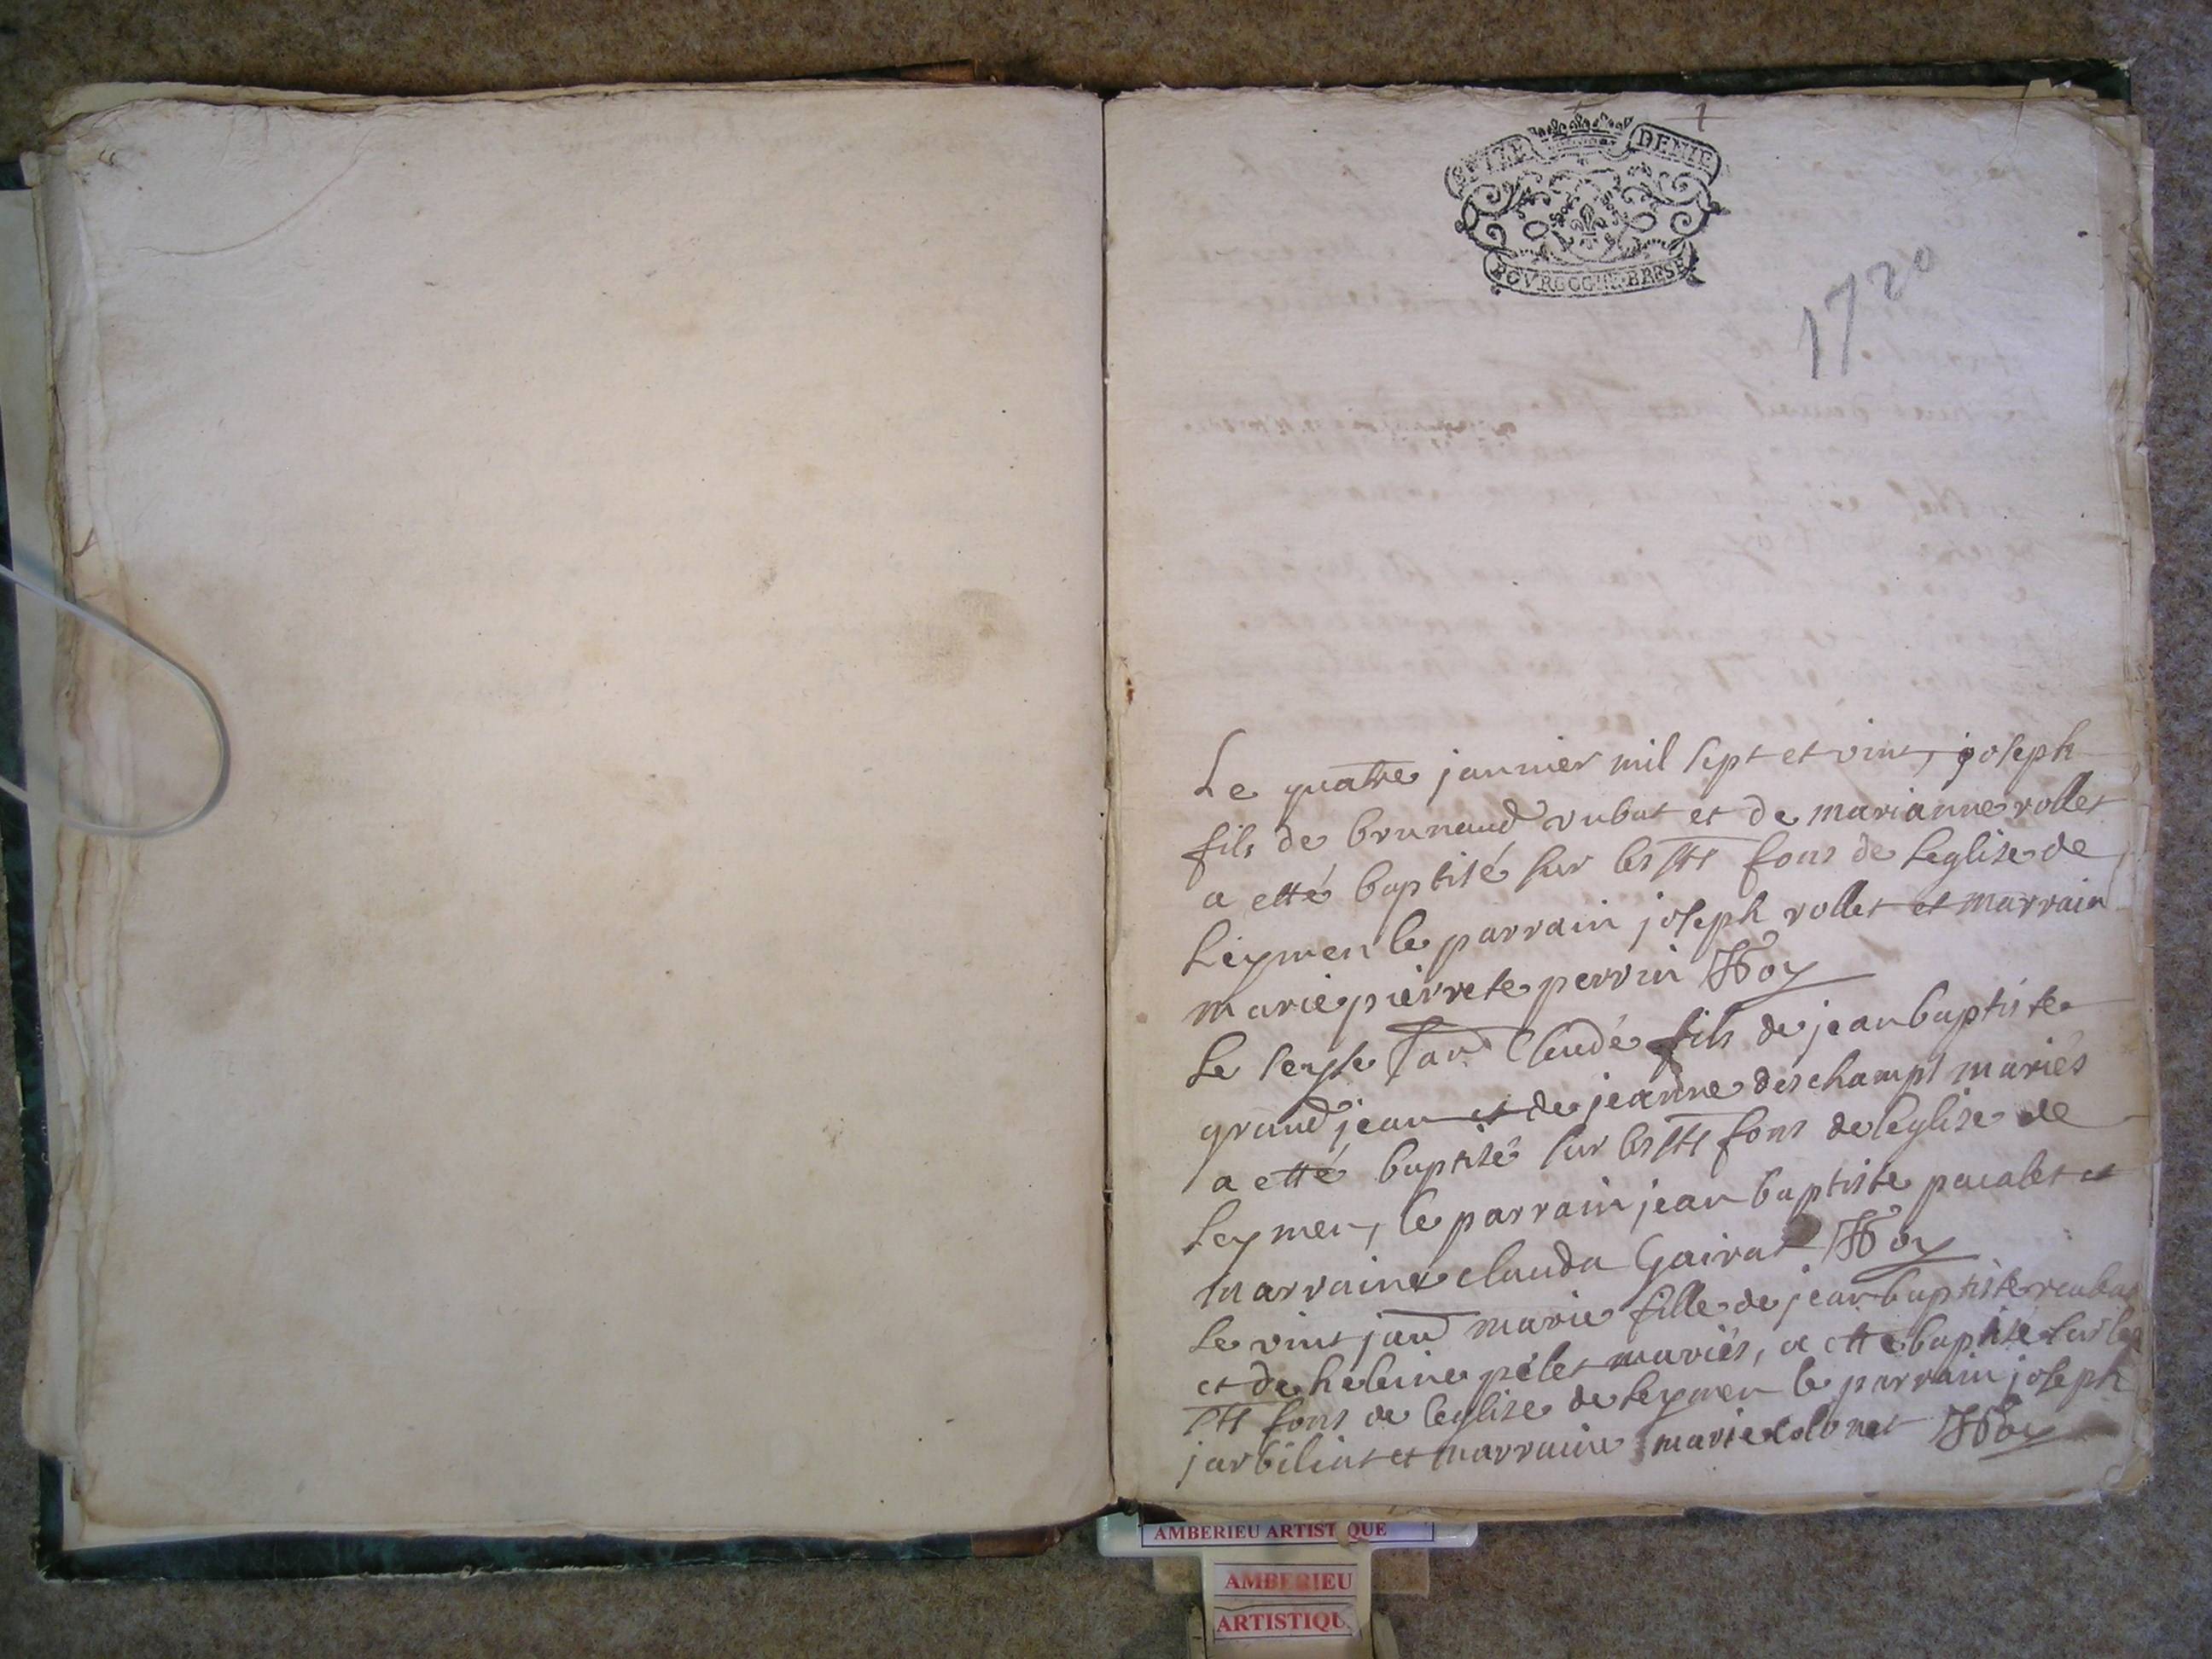 1
SEIZE DENIE
BOVRGOGNE BRESSE
1720
Le quatre januier mil sept et vint, joseph
fils de brunaud rubat et de marianne rollet
a etté baptisé sur les sts fons de leglise de
Leymen le parrain joseph rollet et marrain
marie pierrete perrin Roy
Le seyse jan claude fils de jean baptiste
grand jean et de jeanne deschamps mariés
a etté baptisé sur les sts fons de leglise de
Leymen, le parrain jean baptiste pacalet et
marraine clauda Gairat Roy
Le vint jan marie fille de jean baptiste reubat
et de heleine pélet mariés, a etté baptisé sur les
sts fons de leglise de leymen le parrain joseph
jarbiliat et marraine marie colonet Roy
AMBERIEU ARTISTIQUE
AMBERIEU
ARTISTIQU